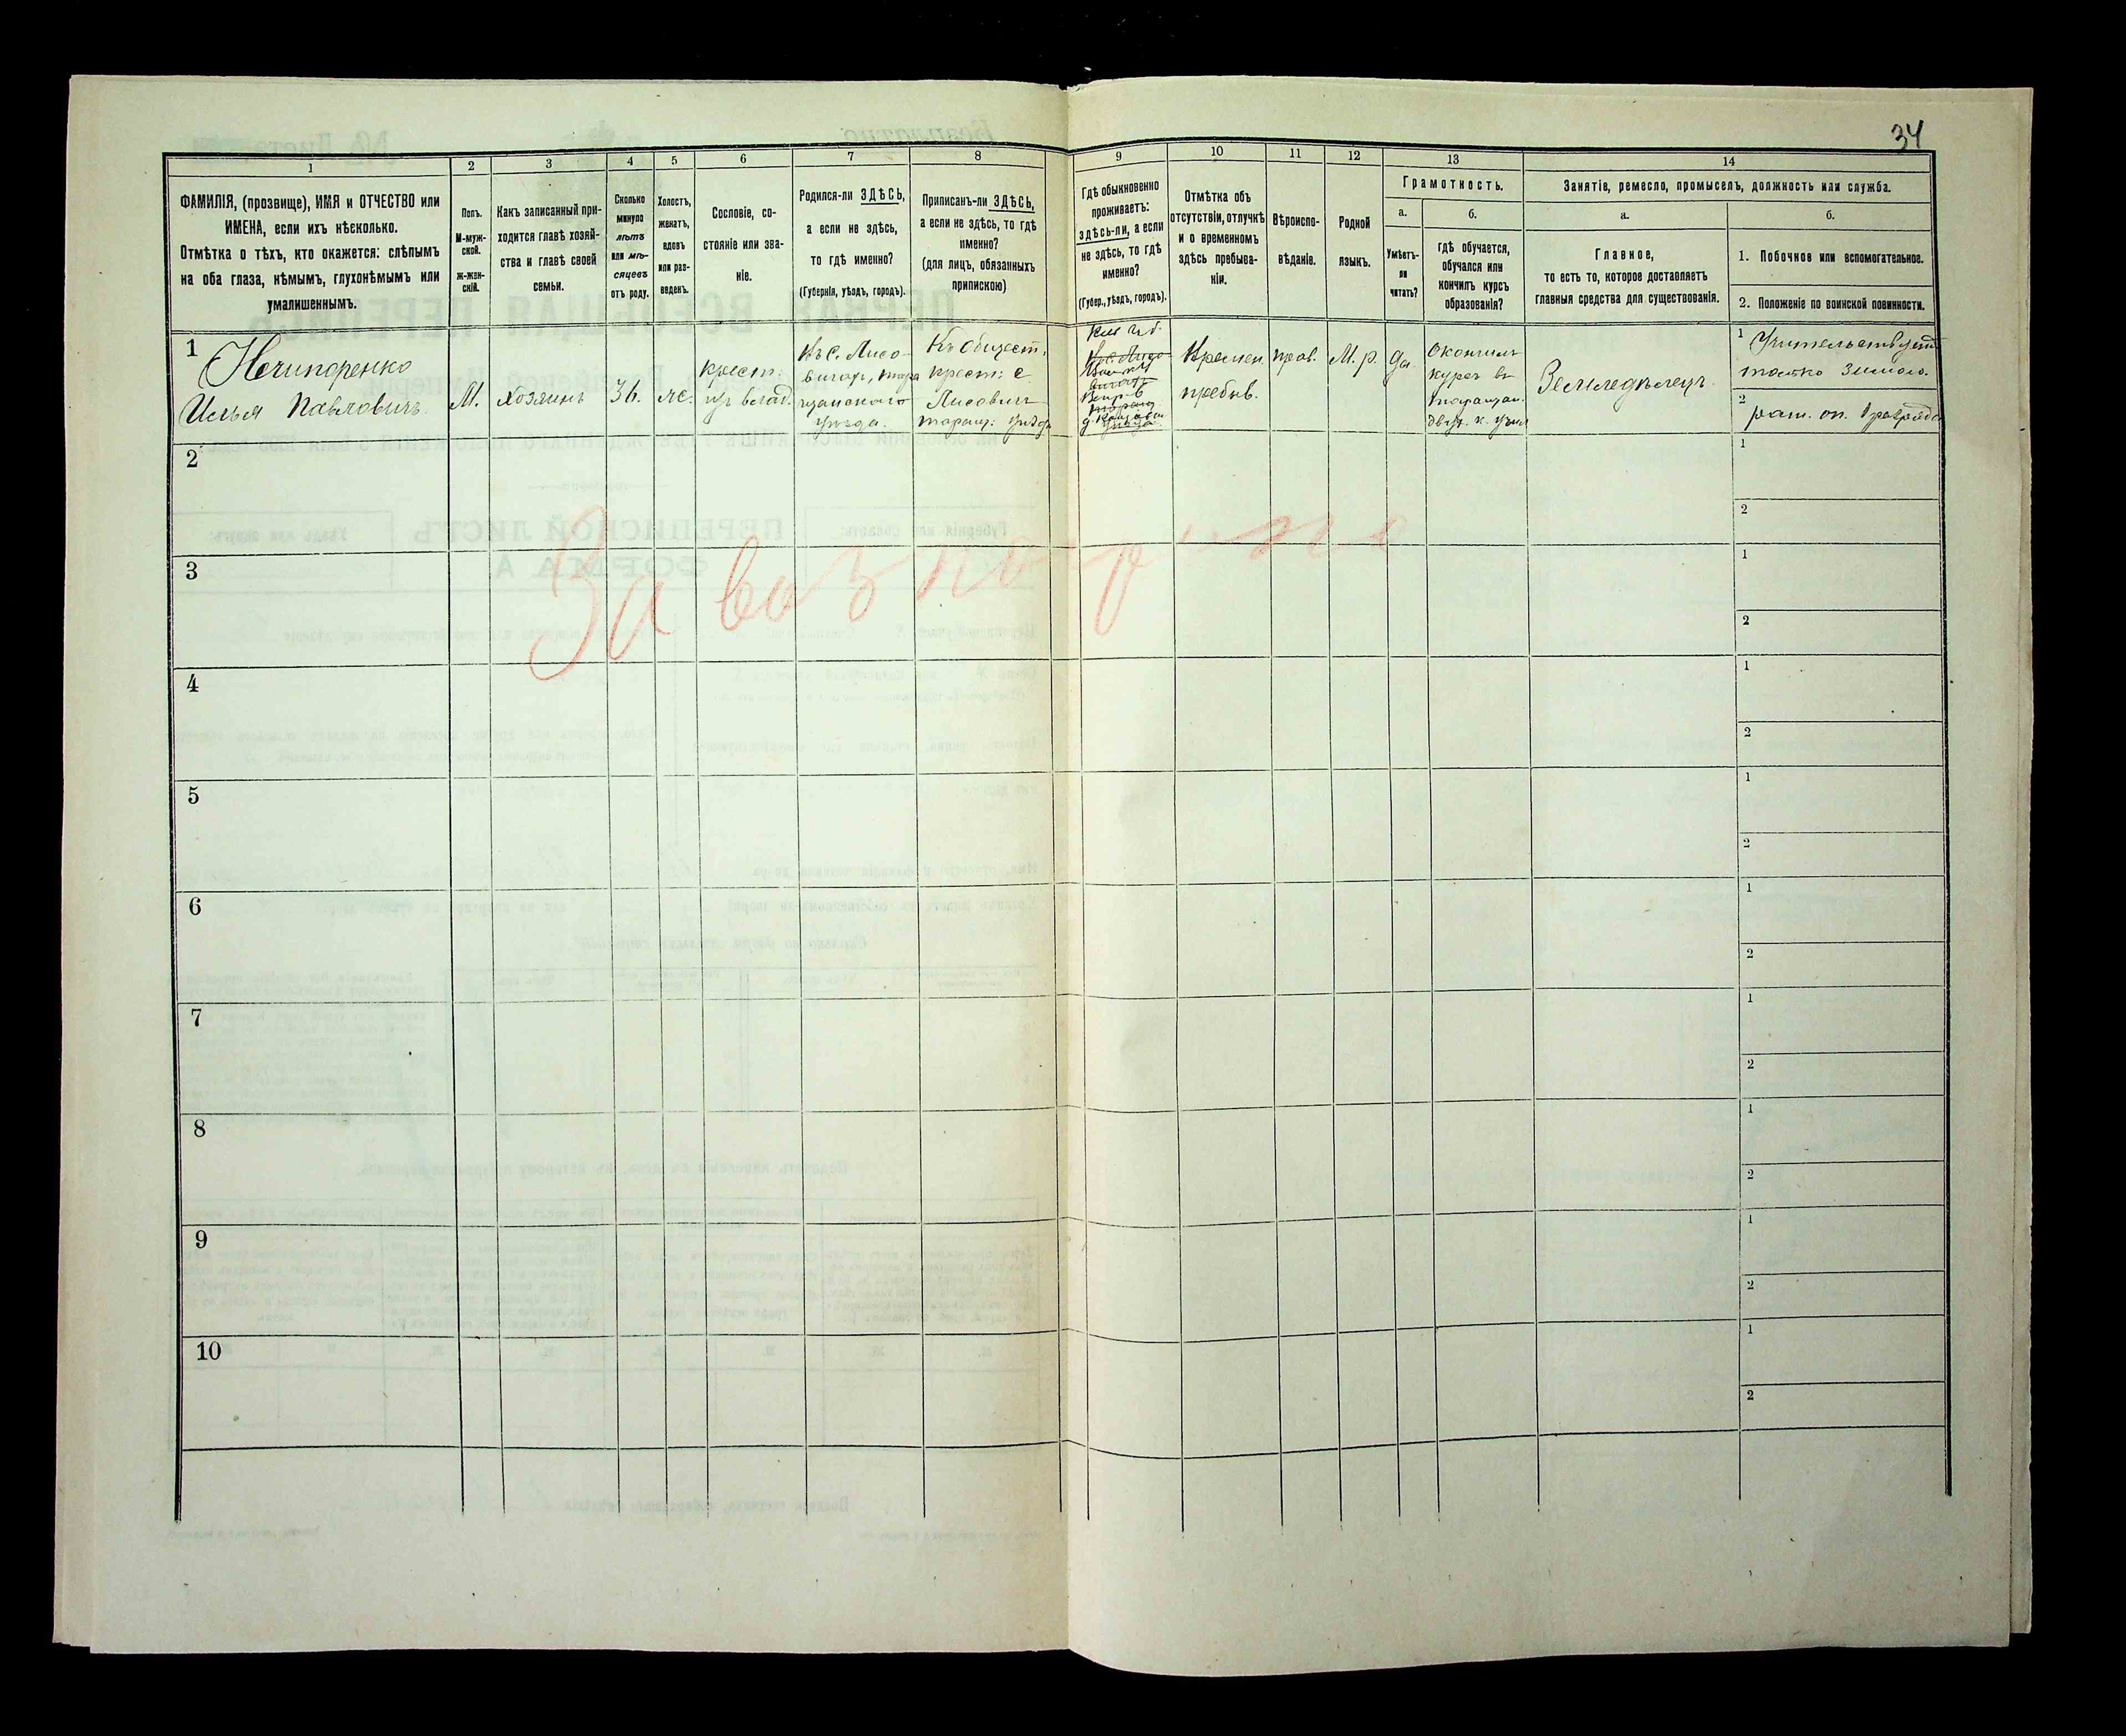 34
1
2
3
4
5
6
7
8
9
10
11
12
13
14
ФАМИЛІЯ, (прозвище), ИМЯ и ОТЧЕСТВО или
ИМЕНА, если ихъ нѣсколько.
Отмѣтка о тѣхъ, кто окажется: слѣпымъ
на оба глаза, нѣмымъ, глухонѣмымъ или
умалишеннымъ.
Полъ.
М-муж-
ской.
ж-жен-
скій.
Какъ записанный при-
ходится главѣ хозяй-
ства и главѣ своей
семьи.
Сколько
минуло
лѣтъ
или мѣ-
сяцевъ
отъ роду.
Холостъ,
женатъ,
вдовъ
или раз-
веденъ.
Сословіе, со-
стояніе или зва-
ніе.
Родился-ли ЗДѢСЬ,
а если не здѣсь,
то гдѣ именно?
(Губернія, уѣздъ, городъ).
Приписанъ-ли ЗДѢСЬ,
а если не здѣсь, то гдѣ
именно?
(для лицъ, обязанныхъ
припискою)
Гдѣ обыкновенно
проживаетъ:
здѣсь-ли, а если
не здѣсь, то гдѣ
именно?
(Губер., уѣздъ, городъ).
Отмѣтка объ
отсутствіи, отлучкѣ
и о временномъ
здѣсь пребыва-
ніи.
Вѣроиспо-
вѣданіе.
Родной
языкъ.
Грамотность.
а.
Умѣетъ-
ли
читать?
б.
гдѣ обучается,
обучался или
кончилъ курсъ
образованія?
Занятіе, ремесло, промыселъ, должность или служба.
а.
Главное,
то есть то, которое доставляетъ
главныя средства для существованія.
б.
1. Побочное или вспомогательное.
2. Положеніе по воинской повинности.
1
Нечипоренко
Илья Павловичъ
М.
Хозяинъ
36.
же.
крест:
изъ владѣ.
Въ с. Лисо-
вичах, тара
щанского
уѣзда.
Къ общест.
крест: с
Лисович
таращ: уѣзда
Времен.
пребыв.
прав.
М. р.
да
Окончилъ
курсъ въ
таращан.
двух. к. учил
Земледѣлецъ.
1 Учительствуетъ
только зимою.
2 рат. оп. 1 разряда
2
1
2
3
1
2
За воз
4
1
2
5
1
2
6
1
2
7
1
2
8
1
2
9
1
2
10
1
2